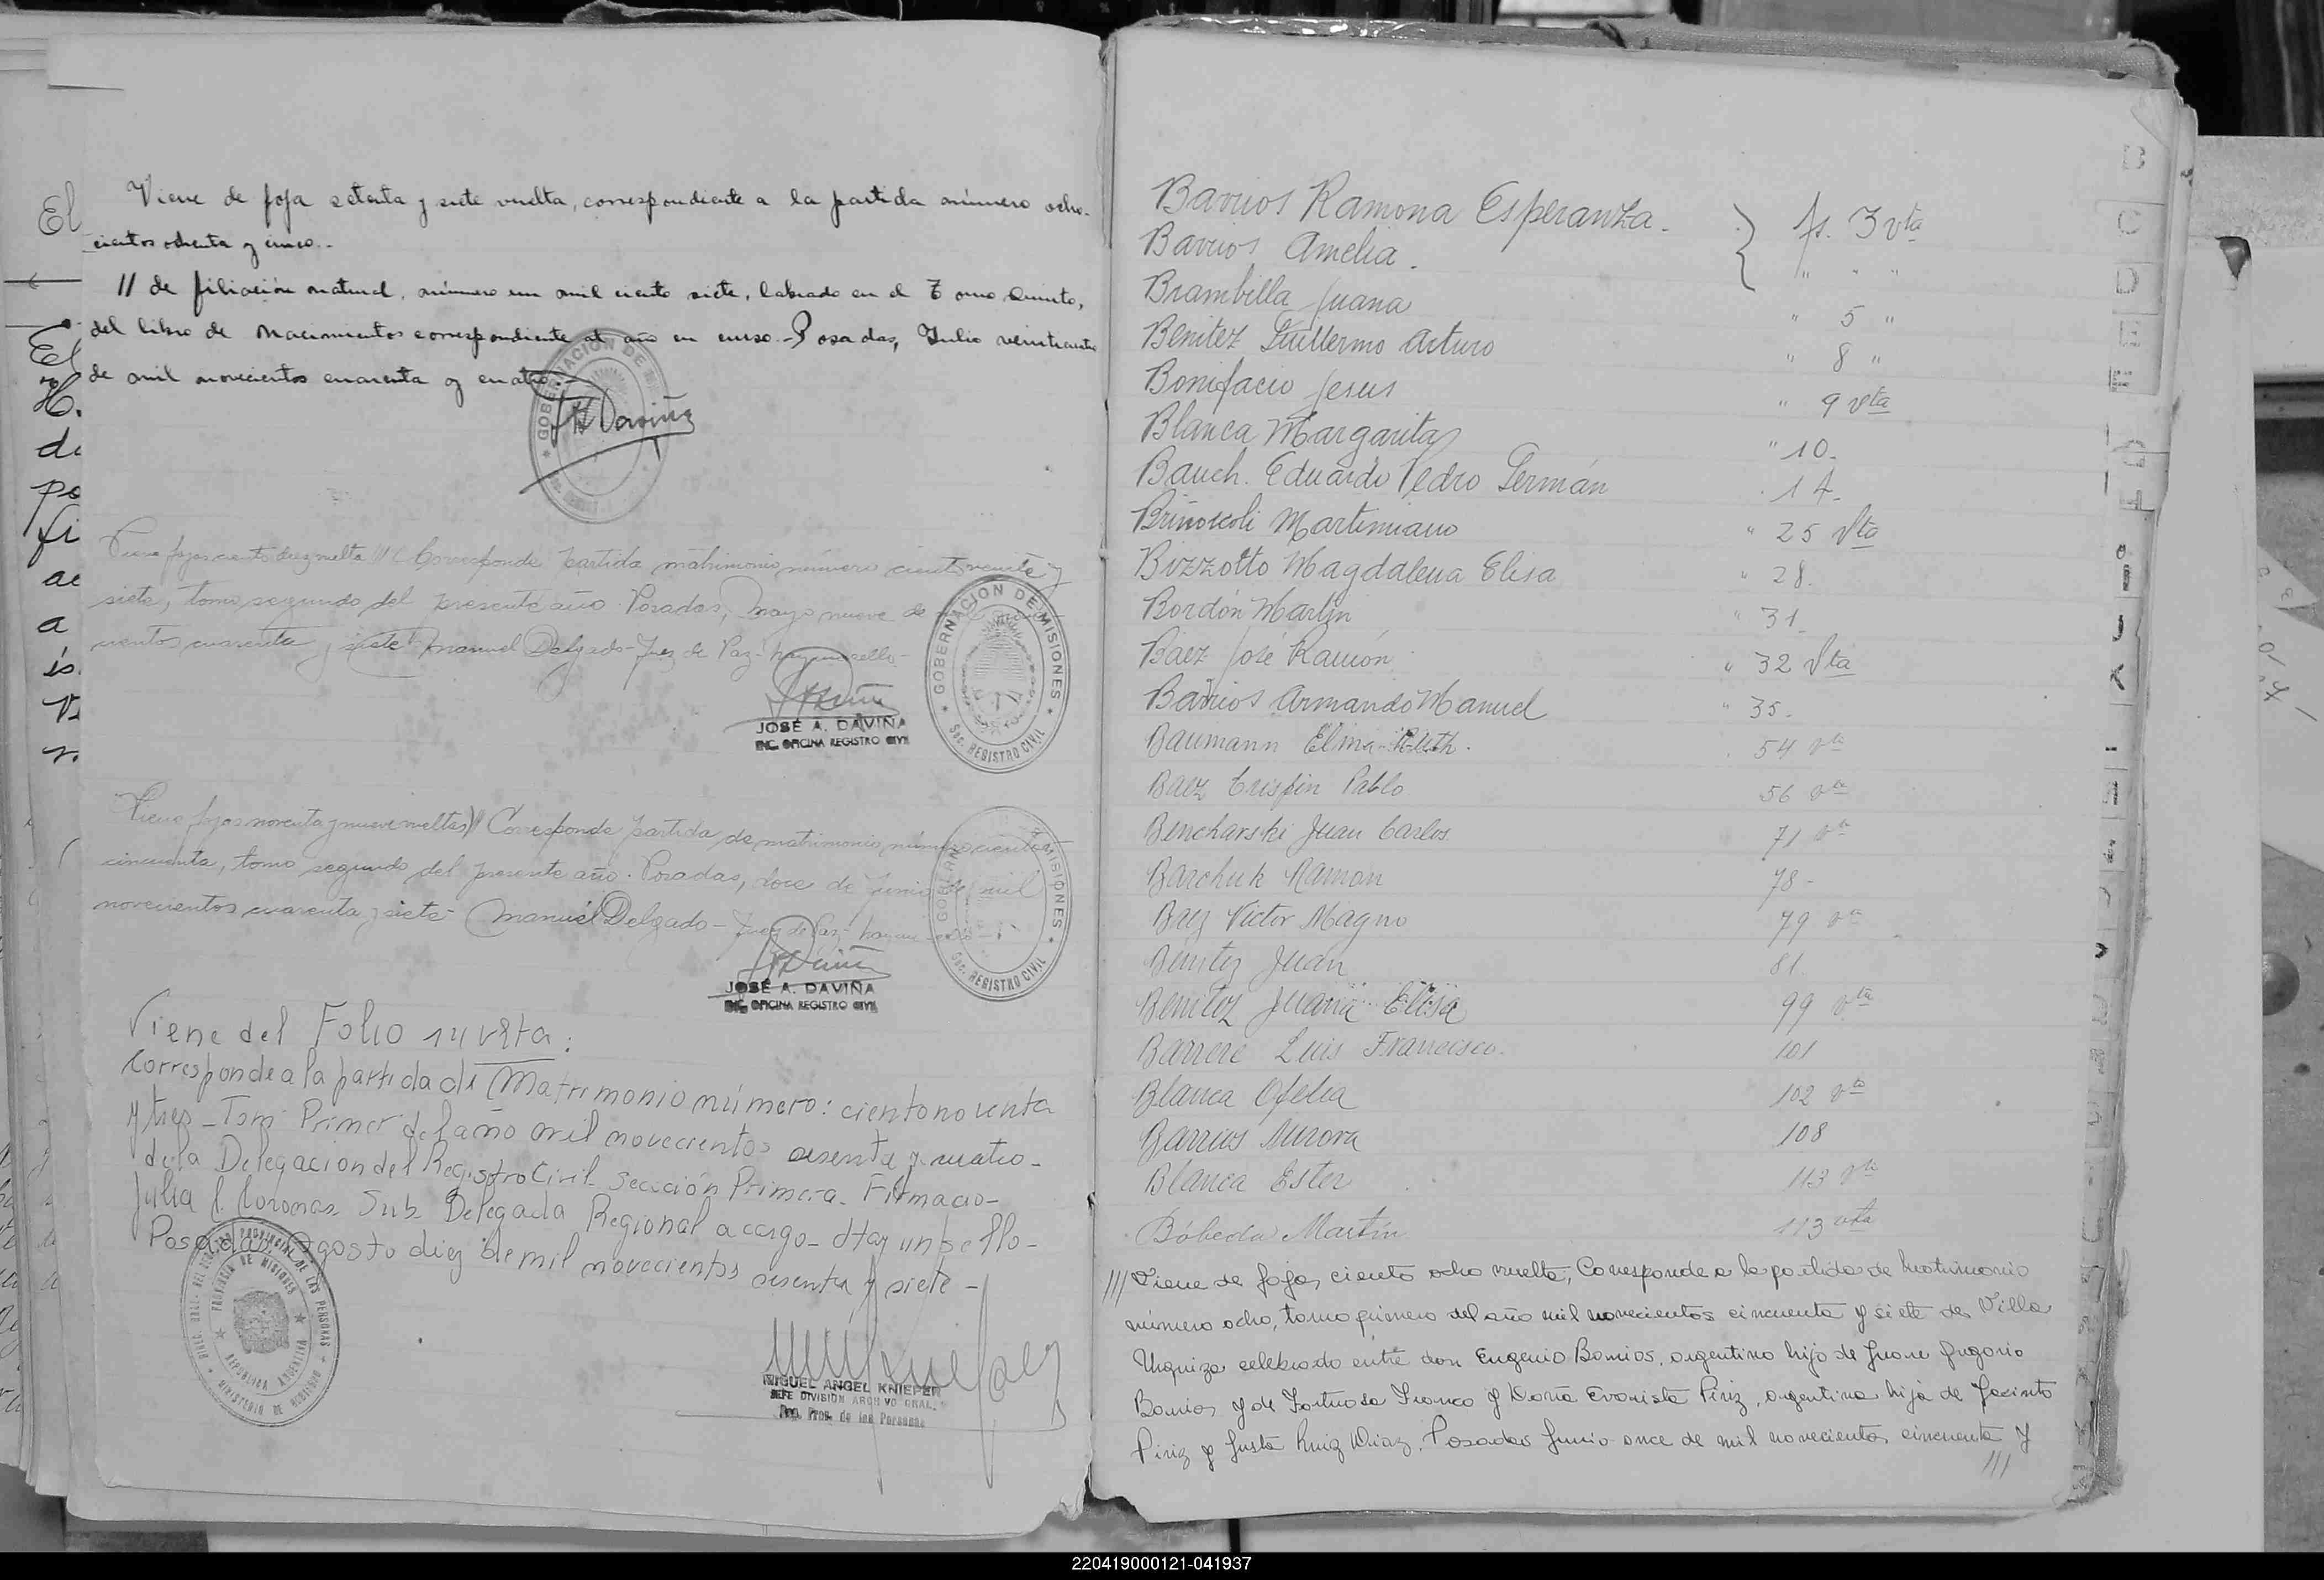 Viene de foja setenta y siete vuelta, correspondiente a la partida número ocho-
cientos ochenta y cinco.-
// de filiación natural, número un mil ciento siete, labrado en el Tomo Quinto,
del libro de Nacimientos correspondiente al año en curso.- Posadas, Julio veinticuatro
de mil novecientos cuarenta y cuatro.-
GOBERNACION DE MI
Viene fojas ciento diez vuelta /// Corresponde partida matrimonio número ciento veinte y
siete, tomo segundo del presente año. Posadas, mayo nueve de
cientos cuarenta y siete. Manuel Delgado - Juez de Paz - hay un sello -
GOBERNACION DE MISIONES
Sec. REGISTRO CIVIL
JOSÉ A. DAVIÑA
ENC. OFICINA REGISTRO CIVIL
Viene fojas noventa y nueve vuelta // Corresponde partida de matrimonio número ciento
cincuenta, tomo segundo del presente año. Posadas, doce de Junio de mil
novecientos cuarenta y siete - Manuel Delgado - Juez de Paz - hay un sello -
MISIONES
Sec. REGISTRO CIVIL
JOSÉ A. DAVIÑA
ENC. OFICINA REGISTRO CIVIL
Viene del Folio 14 vlta:
Corresponde a la partida de Matrimonio número: ciento noventa
y tres - Tom Primer del año mil novecientos sesenta y cuatro -
de la Delegacion del Registro Civil Sección Primera - Firmado -
Julia C. Coronas Sub Delegada Regional a cargo - Hay un sello -
Posadas, Agosto diez de mil novecientos sesenta y siete -
PROVINCIA DE MISIONES
REPUBLICA ARGENTINA
MINISTERIO DE GOBIERNO
MIGUEL ANGEL KNIEPER
JEFE DIVISION ARCHIVO GRAL.
Reg. Prov. de las Personas
Barrios Ramona Esperanza. } fs. 3 vta
Barrios Amelia. " " "
Brambilla Juana " 5 "
Benitez Guillermo Arturo " 8 "
Bonifacio Jesus " 9 vta
Blanca Margarita " 10.
Bauch. Eduardo Pedro Germán 14.
Briñoccoli Martimiano " 25 Vta
Bizzotto Magdalena Elisa " 28.
Bordón Martin " 31.
Báez José Ramón " 32 Vta
Barrios Armando Manuel " 35.
Baumann Elma Ruth. 54 vta
Baez Crispin Pablo 56 vta
Bencharski Juan Carlos 71 vta
Barchuk Ramon 78-
Baez Victor Magno 79 vta
Benitez Juan 81.
Benitez Juana Elisa 99 vta
Barrere Luis Francisco. 101
Blanca Ofelia 102 vta
Barrios Aurora 108
Blanca Ester 113 vta
Bóbeda Martín 113 vta
/// Viene de fojas ciento ocho vuelta, Corresponde a la partida de matrimonio
número ocho, tomo primero del año mil novecientos cincuenta y siete de Villa
Urquiza celebrado entre don Eugenio Barrios, argentino hijo de Juan Gregorio
Barrios y de Fortuosa Franco y Doña Evarista Piriz, argentina hija de Jacinto
Piriz y Justa Ruiz Diaz. Posadas Junio once de mil novecientos cincuenta y
///
B
C
D
E
220419000121-041937